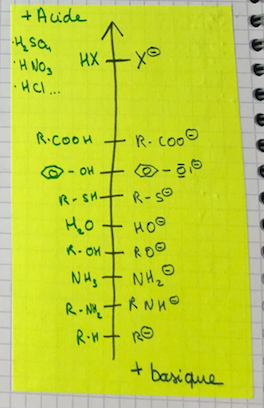 + Acide
· H₂SO₄
· HNO₃
· HCl ...
HX X⊖
R-COOH R-COO⊖
-OH -O|⊖
R-SH R-S⊖
H₂O HO⊖
R-OH RO⊖
NH₃ NH₂⊖
R-NH₂ R NH⊖
R-H R⊖
+ basique